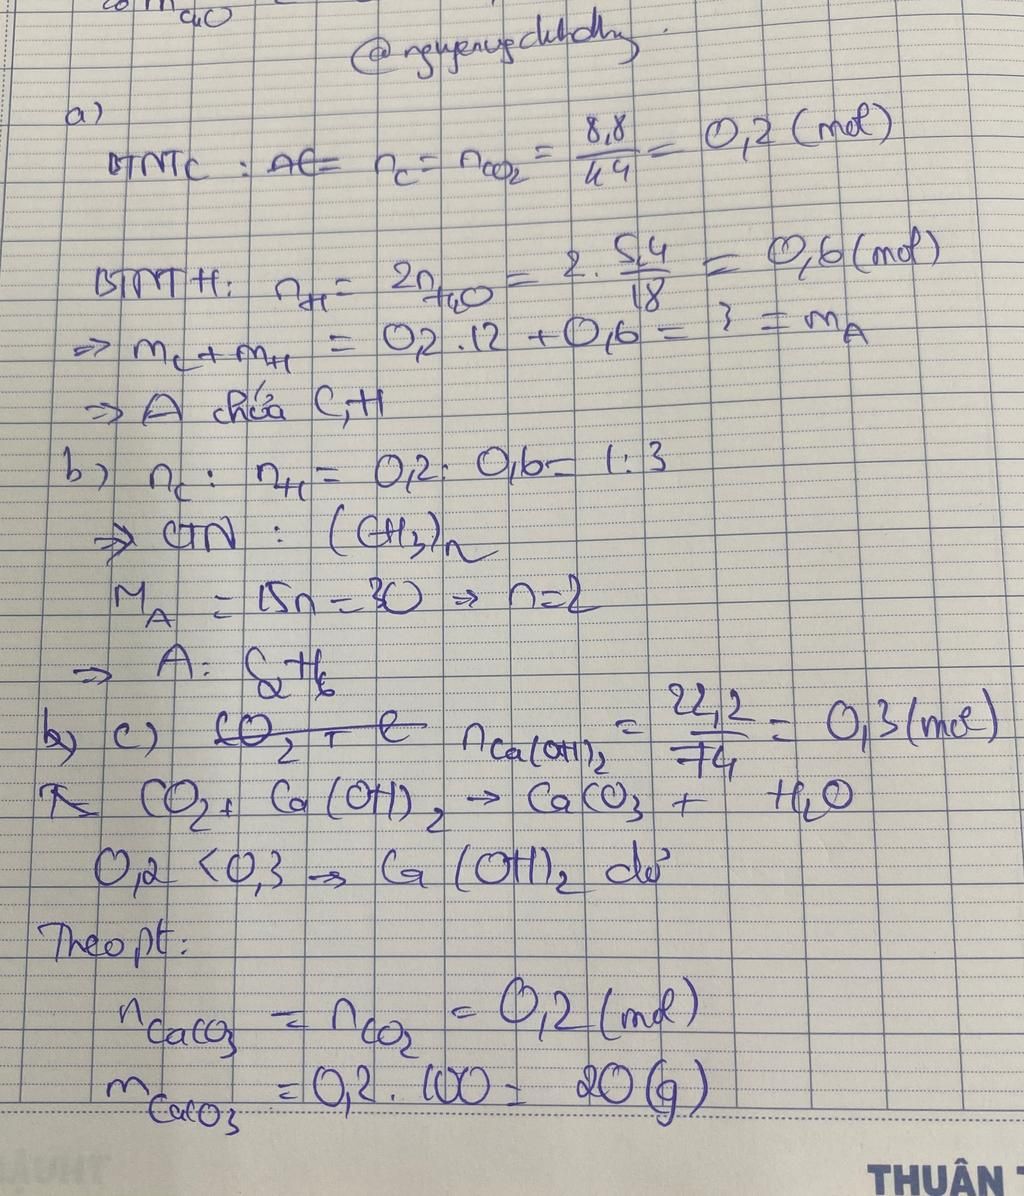 a)
BTNTC : n_C = n_CO₂ = 8,8/44 = 0,2 (mol)
BTNT H: n_H = 2n_H₂O = 2. 5,4/18 = 0,6 (mol)
=> m_C + m_H = 0,2.12 + 0,6 = 3 = m_A
=> A chứa C,H
b) n_C : n_H = 0,2: 0,6 = 1:3
=> CTN : (CH₃)n
M_A = 15n = 30 => n=2
=> A: C₂H₆
b) c) n_Ca(OH)₂ = 22,2/74 = 0,3 (mol)
CO₂ + Ca(OH)₂ → CaCO₃ + H₂O
0,2 < 0,3 → Ca(OH)₂ dư
Theo pt:
n_CaCO₃ = n_CO₂ = 0,2 (mol)
m_CaCO₃ = 0,2. 100 = 20 (g)
THUÂN